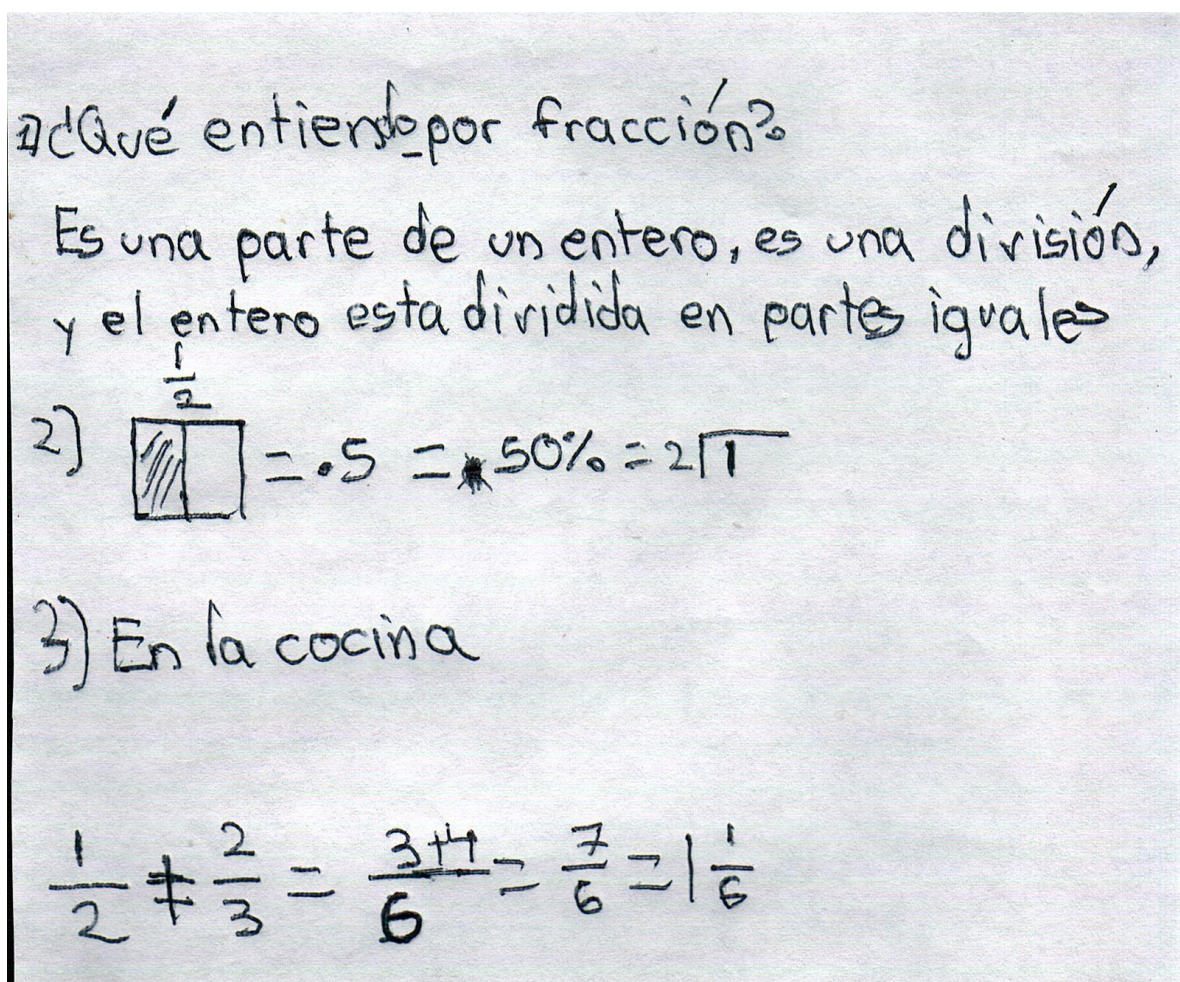 1) ¿Qué entiendo por fracción?
Es una parte de un entero, es una división,
y el entero esta dividida en partes iguales
1/2
2) = .5 = 50% = 2√1
3) En la cocina
1/2 + 2/3 = 3+4/6 = 7/6 = 1 1/6